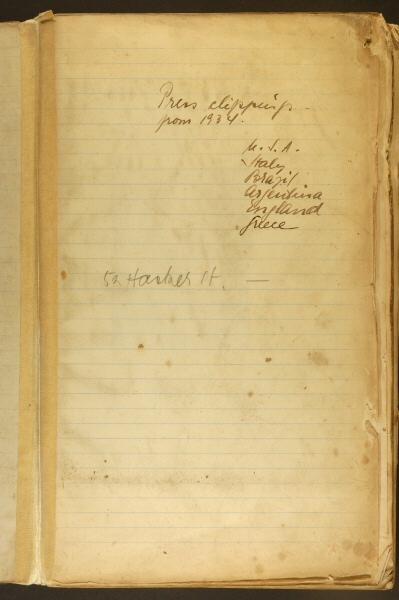 Press clippings
from 1934.
U.S.A.
Italy
Brazil
Argentina
England
Greece
52 Harley St. —